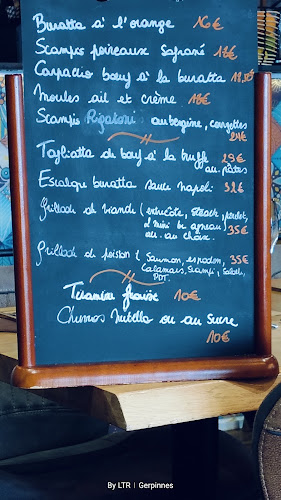 Buratta à l'orange 16€
Scampis poireaux Safrané 18€
Carpaccio bœuf à la buratta 18,50€
Moules ail et crème 18€
Scampis Rigatoni aubergine, courgettes
24€
Tagliatta de bœuf à la truffe 29€
au. pâtes
Escalope buratta sauce napoli 32€
Grillade de viande ( entrecôte, steack, poulet,
et mini bc agneau
au. au choix. 35€
Grillade de poisson ( Saumon, espadon, 35€
Calamars, Scampi, Salade,
PDT.
Tiramisu fraise 10€
Churros Nutella ou au sucre
10€
By LTR | Gerpinnes